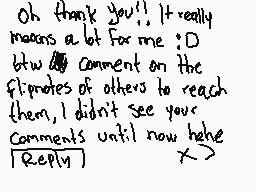 Oh thank you!! It really
means a lot for me :D
btw comment on the
flipnotes of others to reach
them, I didn't see your
comments until now hehe
Reply XD